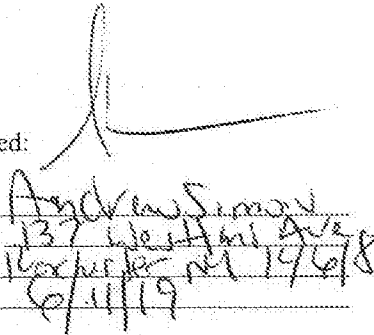 ed:
Andrew Simon
137 Ave
Rochester NY 14618
6/11/19